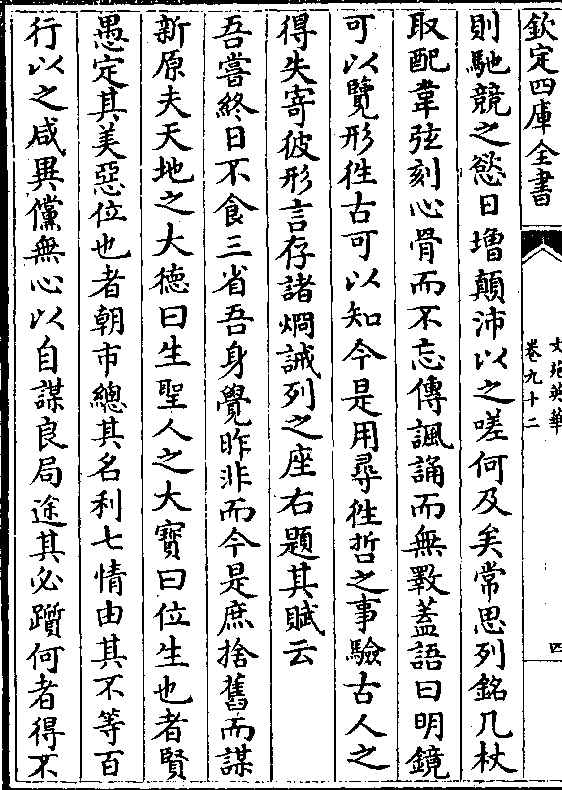 欽定四庫全書
文苑英華
卷九十二
四
則馳競之慾日增顛沛以之嗟何及矣常思列銘几杖
取配韋弦刻心骨而不忘傳諷誦而無斁蓋語曰明鏡
可以覽形徃古可以知今是用尋徃哲之事驗古人之
得失寄彼形言存諸炯誡列之座右題其賦云
吾嘗終日不食三省吾身覺昨非而今是庶捨舊而謀
新原夫天地之大德曰生聖人之大寳曰位生也者賢
愚定其美惡位也者朝市總其名利七情由其不等百
行以之咸異儻無心以自謀良局途其必躓何者得不